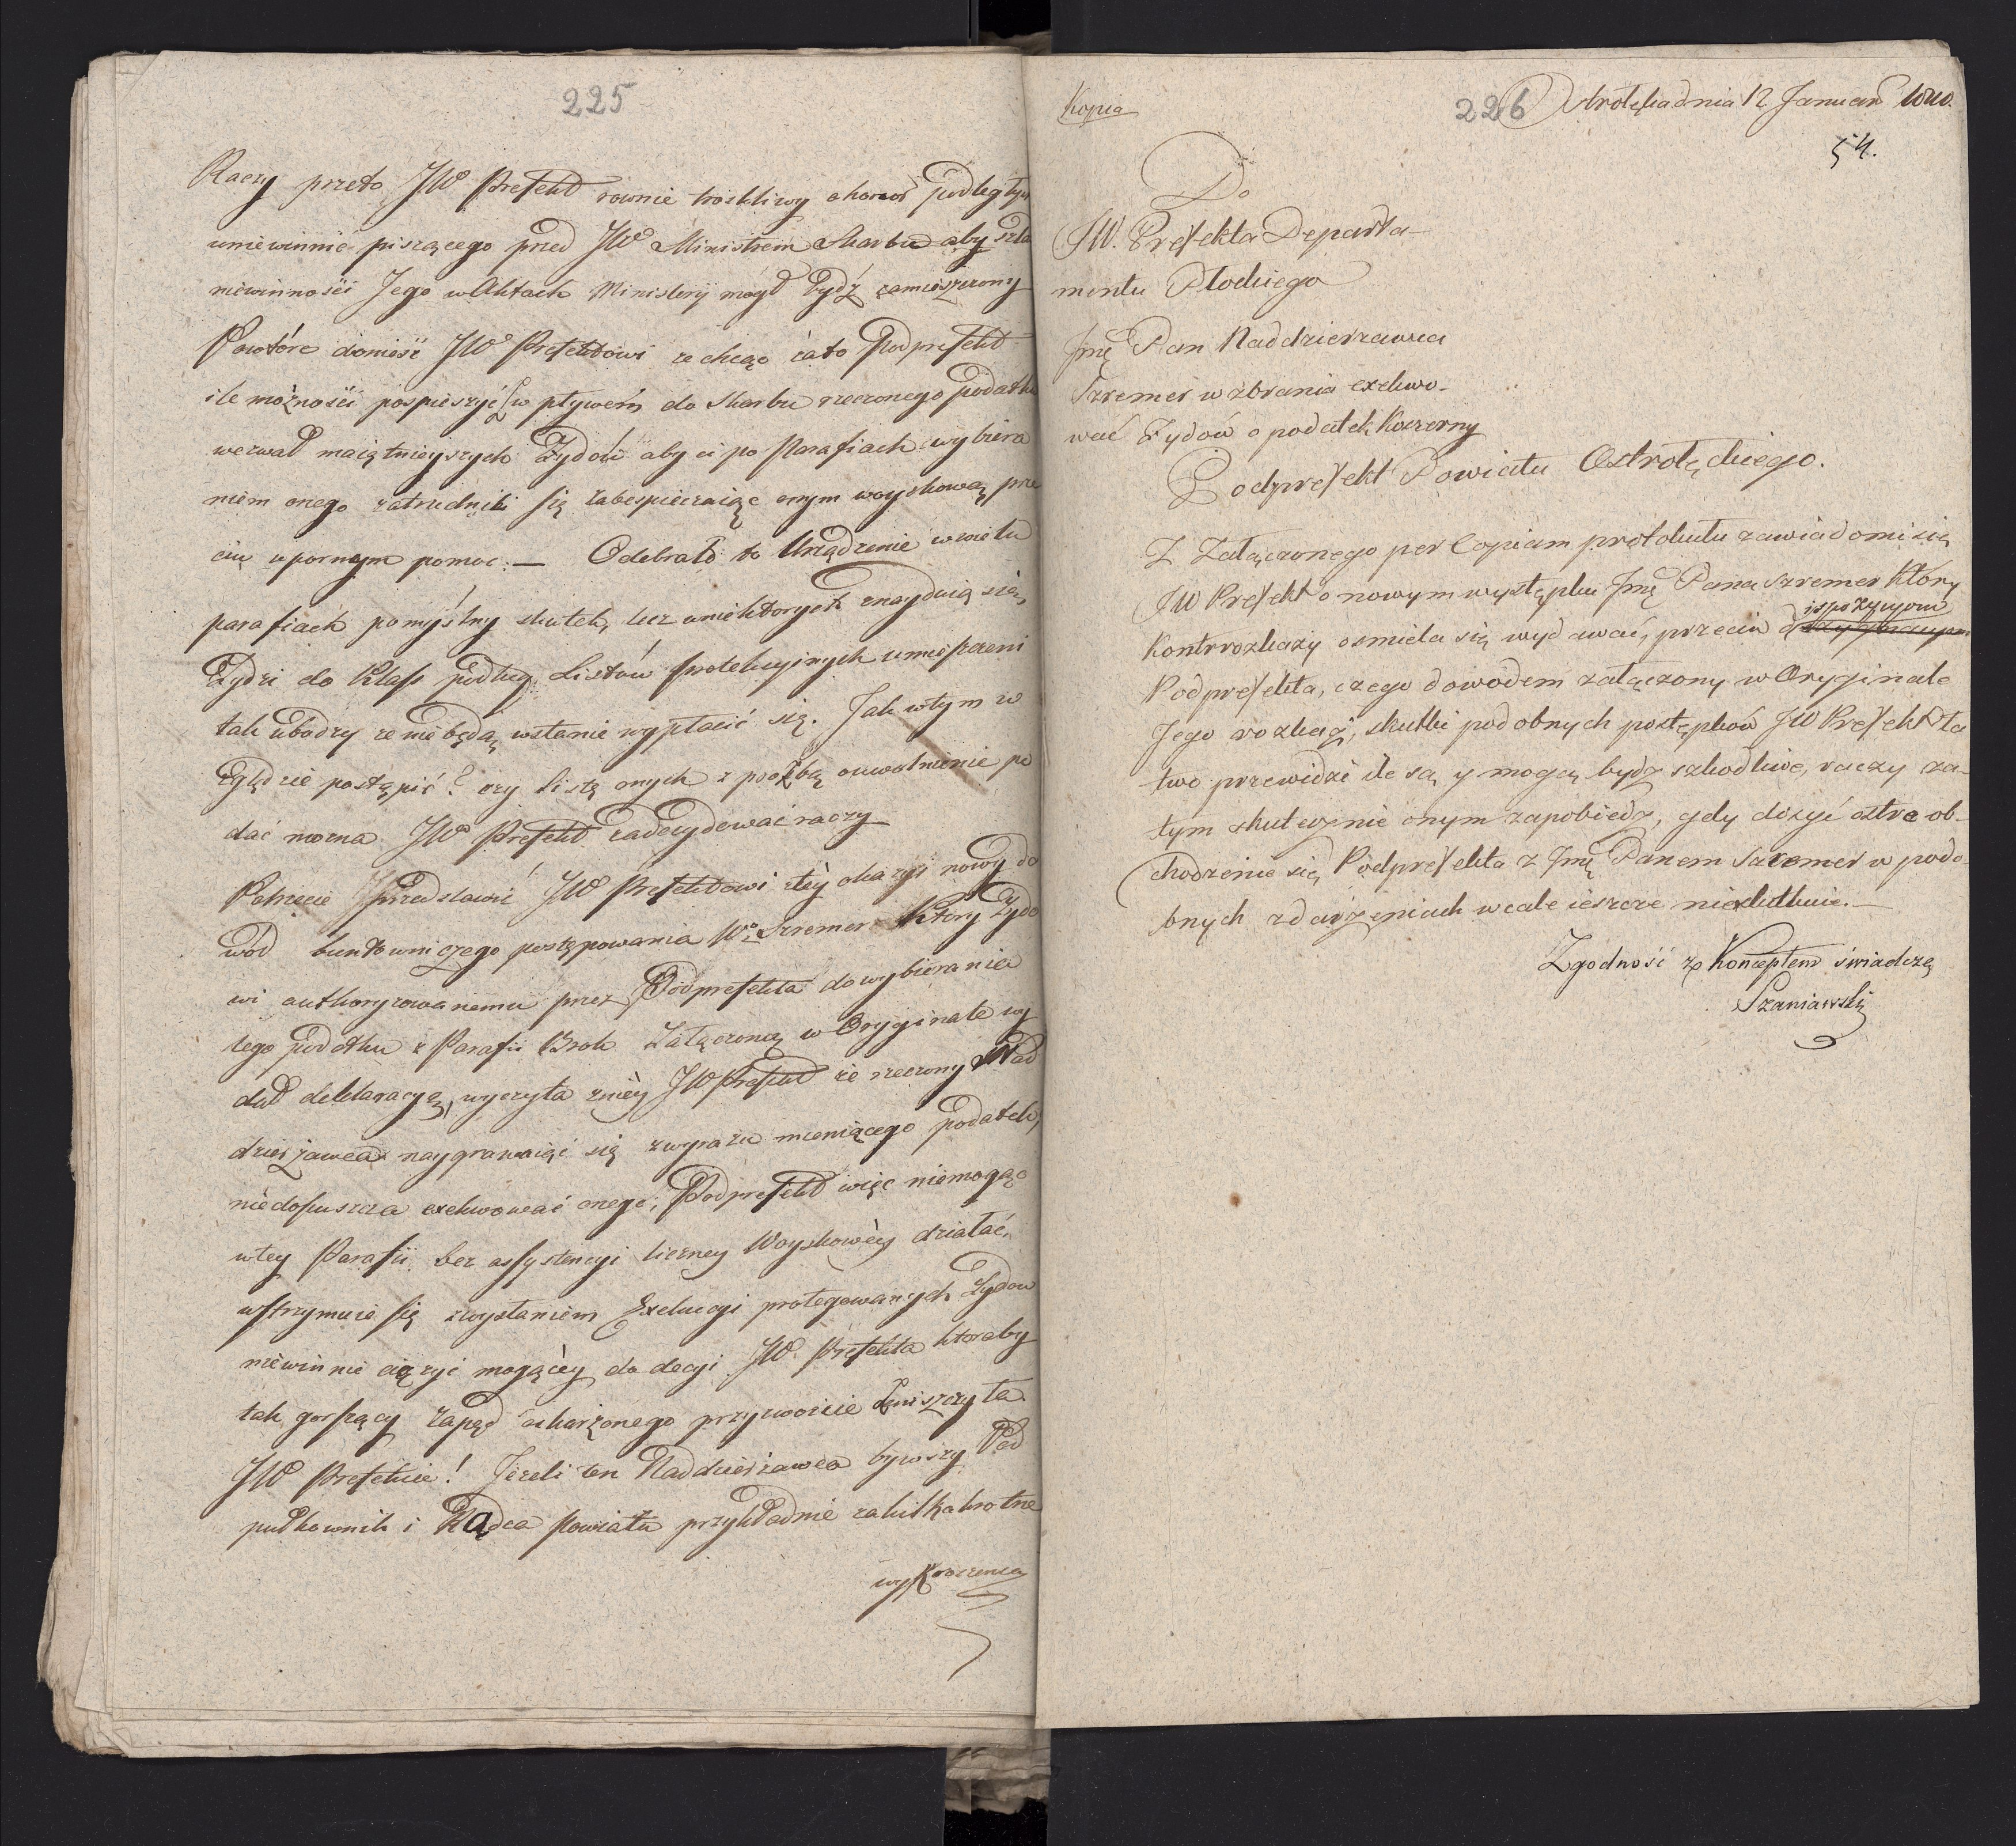 225
Raczy przeto JW Prefekt rownie troskliwy o honor podległych
uniewinnić piszącego przed JW Ministrem Skarbu aby szla
niewinności Jego w Aktach Ministerij mógł bydź zamieszczony
Powtóre donieść JW Prefektowi ze chcąc iako Podprefekt
ile możności pospieszyć z wpływem do skarbu rzeczonego podatku
wezwał maiętnieyszych Żydów aby ci po Parafiach wybiera
niem onego zatrudnili się zabespieczaiąc onym woyskową prze
ciw upornym pomoc. — Odebrało to Urządzenie w wielu
parafiach pomyślny skutek, lecz w niektorych znayduią się,
Żydzi do Klass podług Listów protekcyinych umieszczeni
tak ubodzy ze nie będą w stanie wypłacić się. Jak w tym w
zględzie postąpić? czy Listę onych z prozbą o uwolnienie po
dać można JW Prefekt zadecydować raczy
Potrzecie Przedstawić JW Prefektowi z tey okazyi nowy do
wód buntowniczego postępowania Wo Szremer Który Żydo
wi authoryzowanemu przez Podprefekta do wybierania
tego podatku z Parafii Brok Załączoną w Oryginale wy
dał deklaracyą, wyczyta z niey JW Prefekt że rzeczony Nad
dzierżawca naygrawaiąc się z wyrazu mieniącego podatek,
niedopuszcza exekwować onego; Podprefekt więc niemogąc
w tey Parafii bez assystencyi liczney Woyskowey działać,
wstrzymuie się z wysłaniem Exekucyi protegowanych Żydow
niewinnie ciązyć mogącey do decyi JW. Prefekta ktoraby
tak gorszący zapęd oskarżonego przyzwoicie zniszczyła
JW Prefekcie! Jeżeli ten Naddzierżawca bywszy Pod
pułkownik i Rządca Powiatu przykładnie za kilkakrotne
wykroczenia
Kopia
226
Ostrołęka dnia 12 Januar 1810.
54.
Do
JW. Prefekta Departa-
mentu Płockiego
Jmć Pan Naddzierzawca
Szremer wzbrania exekwo-
wać Żydów o podatek Koszerny
Podprefekt Powiatu Ostrołęckiego.
Z Załączonego per Copiam protokułu zawiadomi się
JW Prefekt o nowym występku Jmć Pana Szremer Który
Kontrrozkazy osmiela się wydawać, przeciw dispozycyom
Podprefekta, czego dowodem załączony w Oryginale
Jego rozkaz, skutki podobnych postępków JW Prefekt ła
two przewidzi ile są y mogą bydź szkodliwe, raczy za-
tym skutecznie onym zapobiedz, gdy dosyć ostre ob-
chodzenie się Podprefekta z Jmć Panem Szremer w podo-
bnych zdarżeniach wcale ieszcze nieskutkuie. —
Zgodność z Konceptem świadczę
Szaniawski